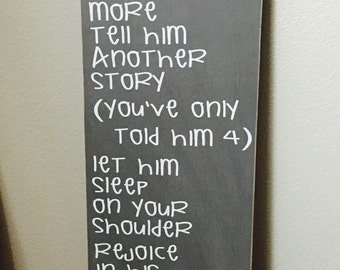 more
tell him
another
story
(you've only
told him 4)
let him
sleep
on your
shoulder
rejoice
in his